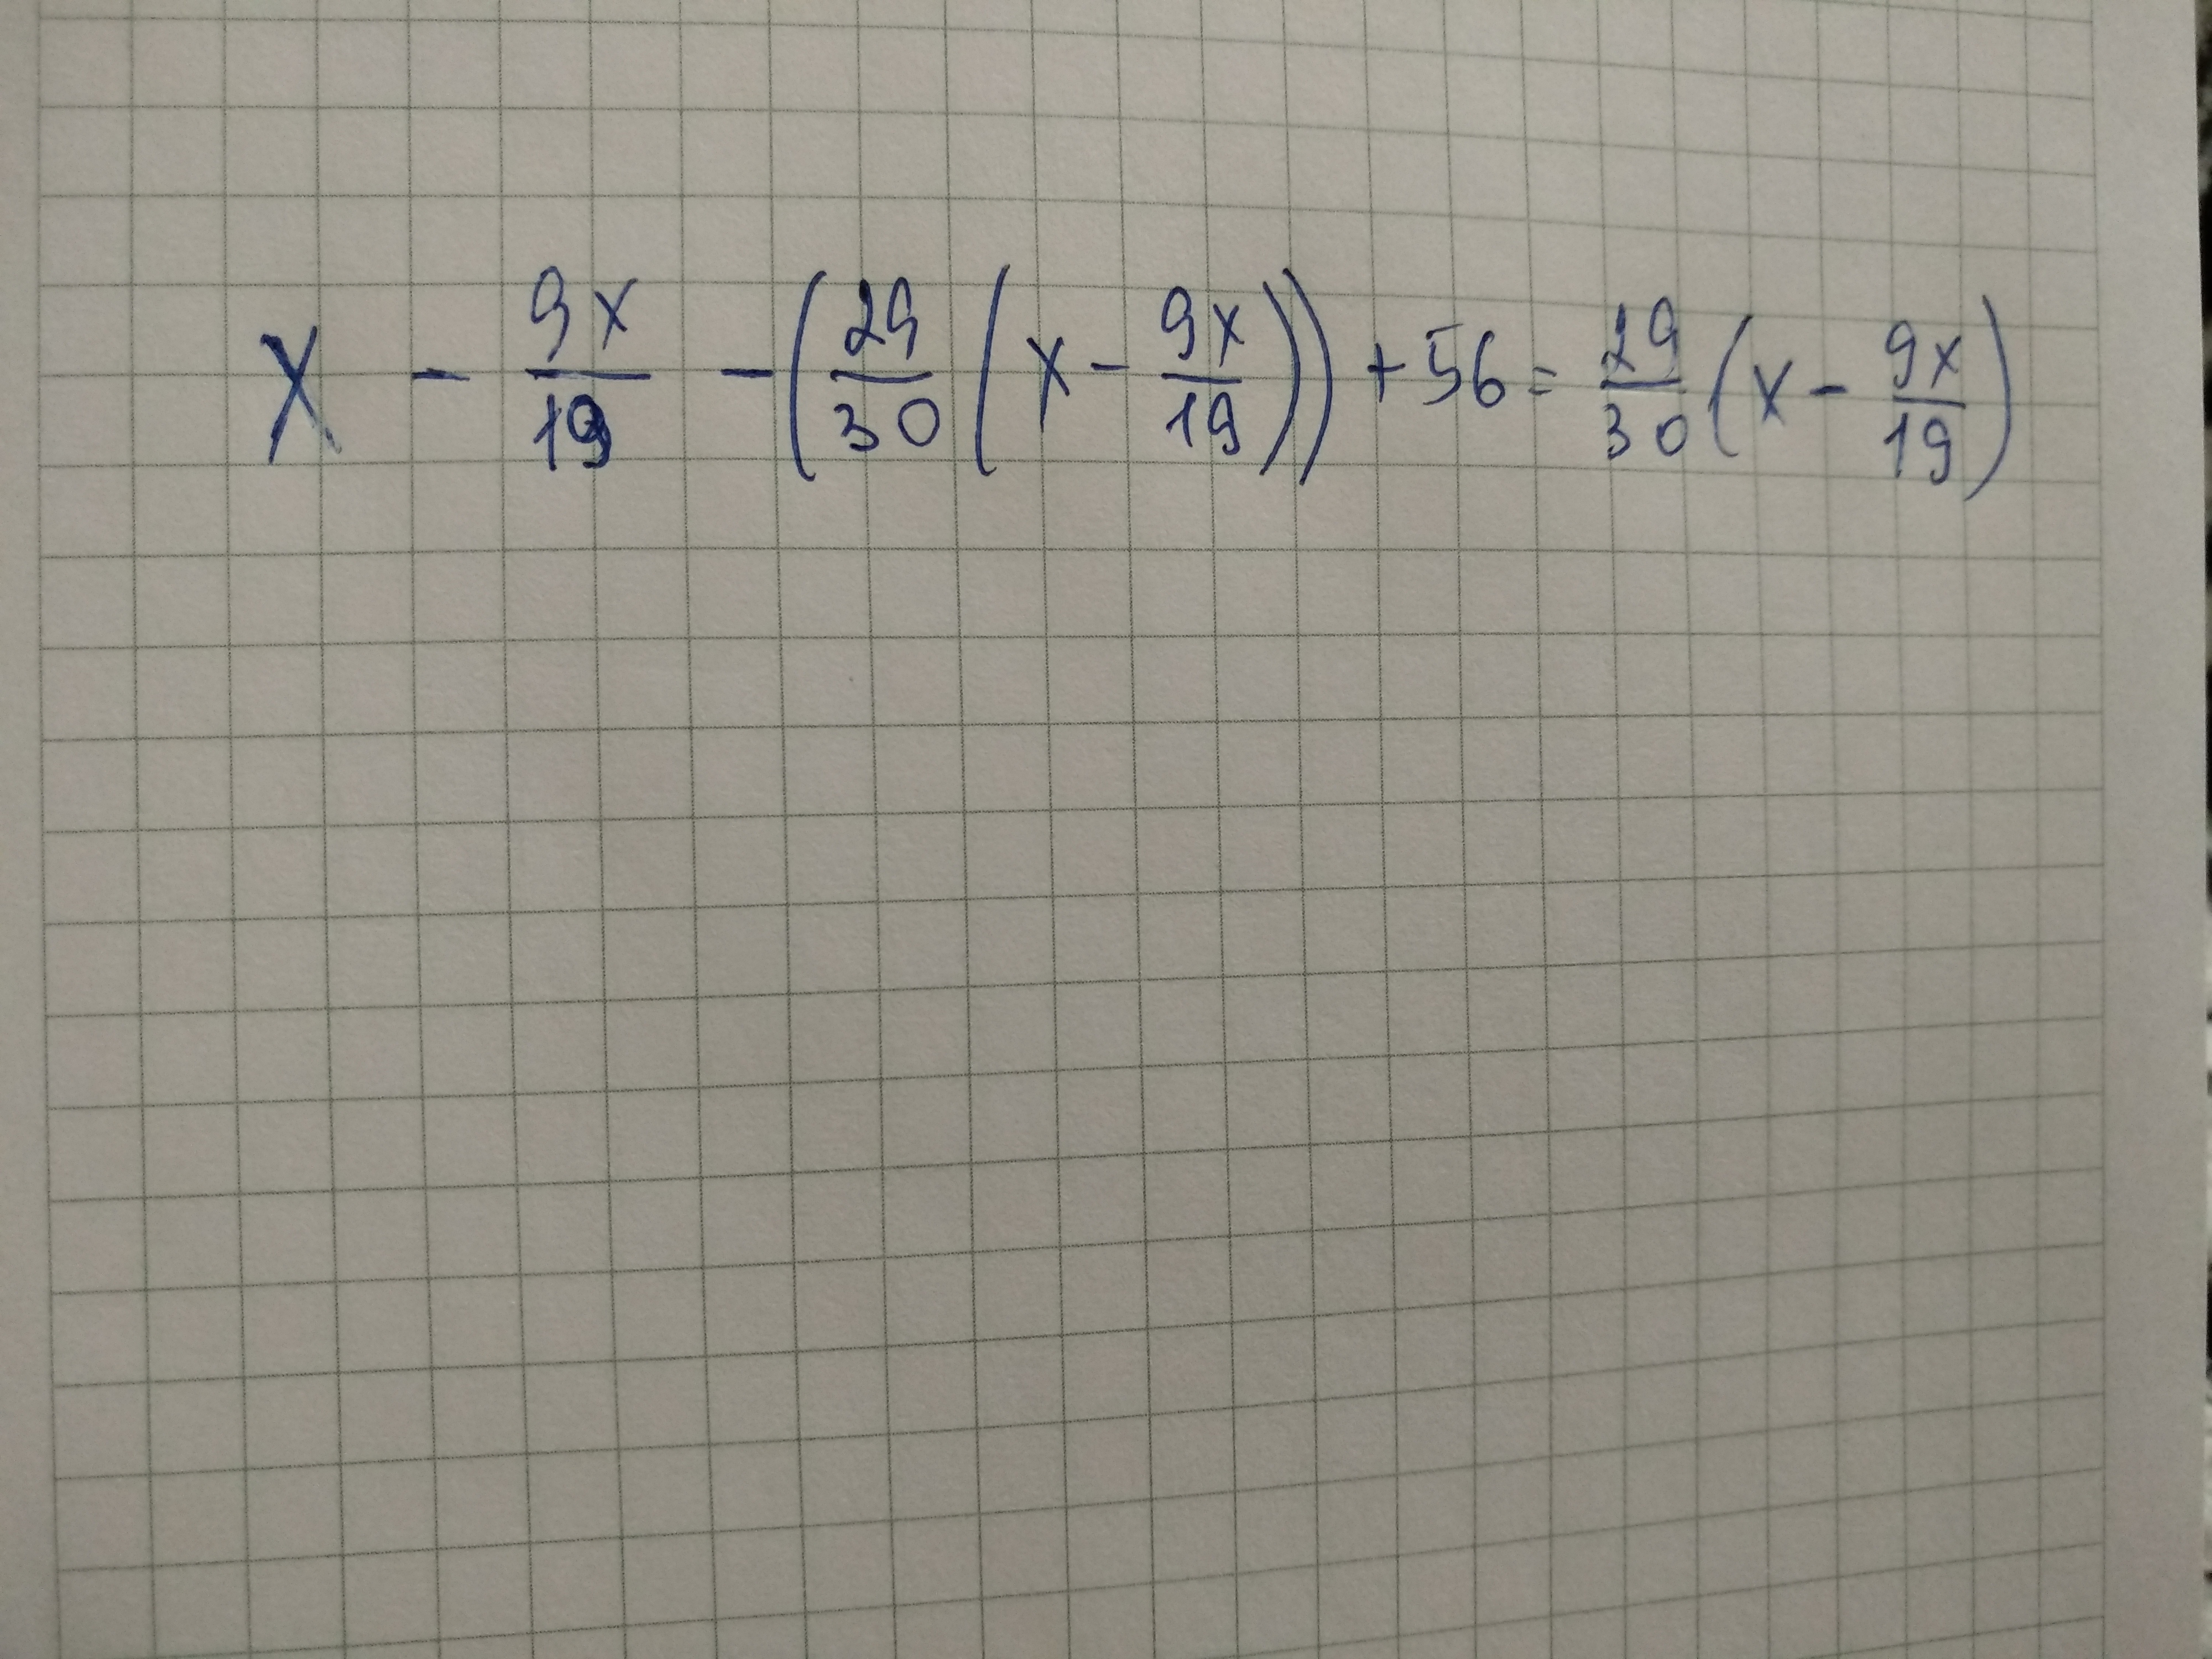 x - 9x/19 - (29/30 (x - 9x/19)) + 56 = 29/30 (x - 9x/19)